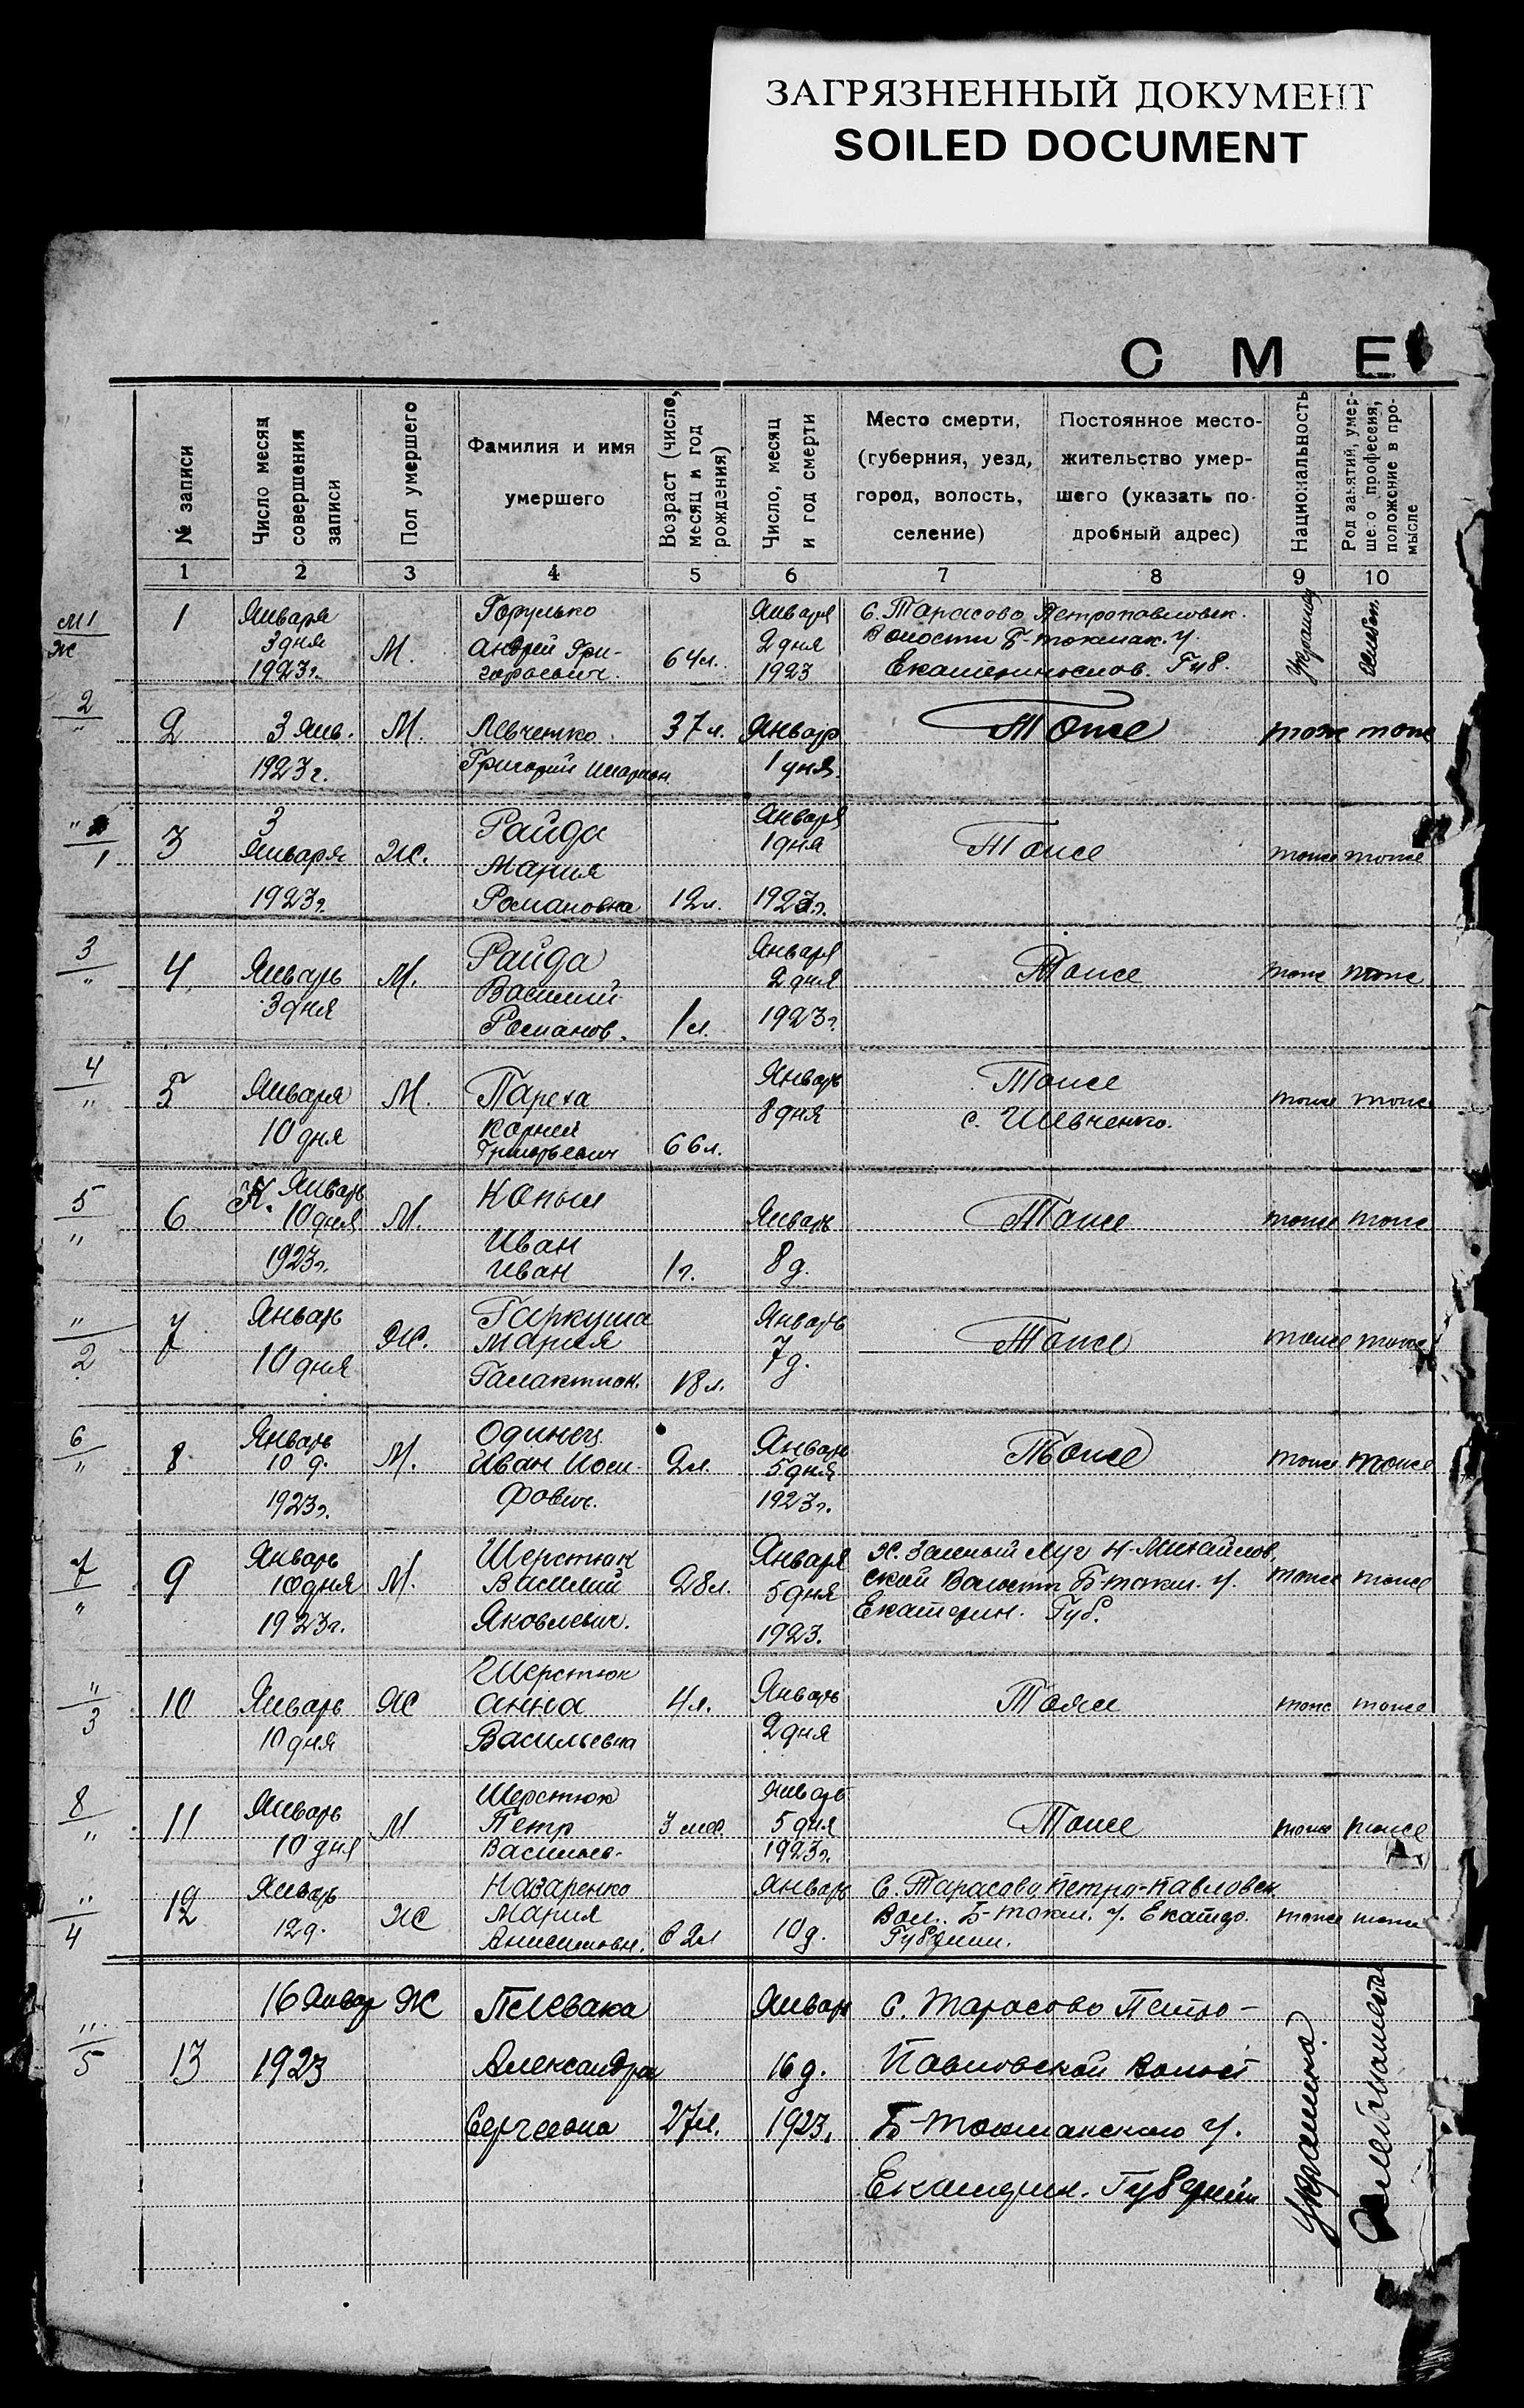 ЗАГРЯЗНЕННЫЙ ДОКУМЕНТ
SOILED DOCUMENT
С М Е
№ записи
Число месяц
совершения
записи
Пол умершего
Фамилия и имя
умершего
Возраст (число,
месяц и год
рождения)
Число, месяц
и год смерти
Место смерти,
(губерния, уезд,
город, волость,
селение)
Постоянное место-
жительство умер-
шего (указать по-
дробный адрес)
Национальность
Род занятий, умер-
шего профессия,
положение в про-
мысле
1 2 3 4 5 6 7 8 9 10
М 1
Ж
1
Января
3 дня
1923 г.
М.
Горулько
Андрей Гри-
горьевич.
64 л.
Января
2 дня
1923
с. Тарасово Петропавловск.
Волости Б-токмак. у.
Екатеринослов. Губ.
2
"
2
3 Янв.
1923 г.
М.
Левченко
Григорий
37 л.
Январь
1 дня.
Тоже
тоже
тоже
"
1
3
3
Января
1923 г.
Ж.
Райда
Мария
Романовна
12 л.
Января
1 дня
1923 г.
Тоже
тоже
тоже
3
"
4
Январь
3 дня
М.
Райда
Василий
Романов.
1 л.
Января
2 дня
1923 г.
Тоже
тоже
тоже
4
"
5
Января
10 дня
М.
Пареха
Корней
Григорьевич
66 л.
Январь
8 дня
Тоже
с. Шевченко.
тоже
тоже
5
"
6
Январь
10 дня
1923 г.
М.
Копыл
Иван
Иван
1 г.
Январь
8 д.
Тоже
тоже
тоже
"
2
7
Январь
10 дня
Ж.
Гаркуша
Мария
Галактион.
18 л.
Январь
7 д.
Тоже
тоже
тоже
6
"
8
Январь
10 д.
1923 г.
М.
Одинец
Иван Иоси-
фович.
2 л.
Январь
5 дня
1923 г.
Тоже
тоже
тоже
7
"
9
Январь
10 дня
1923 г.
М.
Шерстюк
Василий
Яковлевич.
28 л.
Января
5 дня
1923.
Х. Зеленый Луг Н-Михайлов,
ской Волости Б-токм. у.
Екатерин. Губ.
тоже
тоже
"
3
10
Январь
10 дня
Ж
Шерстюк
Анна
Васильевна
4 л.
Январь
2 дня
Тоже
тоже
тоже
8
"
11
Январь
10 дня
М
Шерстюк
Петр
Васильев.
3 мес.
Январь
5 дня
1923 г.
Тоже
тоже
тоже
"
4
12
Январь
12 д.
Ж
Назаренко
Мария
Анисимовн.
62 л
Январь
10 д.
С. Тарасово, Петро-Павловск.
Вол. Б-токм. у. Екатер.
Губернии.
тоже
тоже
"
5
13
16 Январ
1923
Ж
Плевака
Александра
Сергеевна
27 л.
Январ
16 д.
1923.
с. Тарасово Петро-
Павловской Волост
Б-Токманского у.
Екатерин. Губернии
Украинка